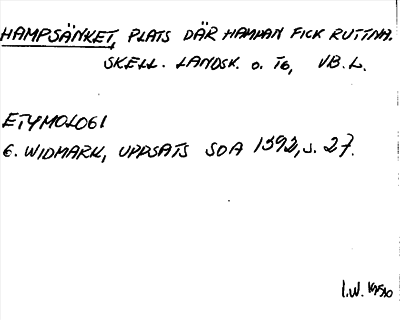 HAMPSÄNKET, PLATS DÄR HAMPAN FICK RUTTNA.
SKELL. LANDSK. o. TO, VB. L.
ETYMOLOGI
G. WIDMARK, UPPSATS SOA 1392, s. 27.
I.W.